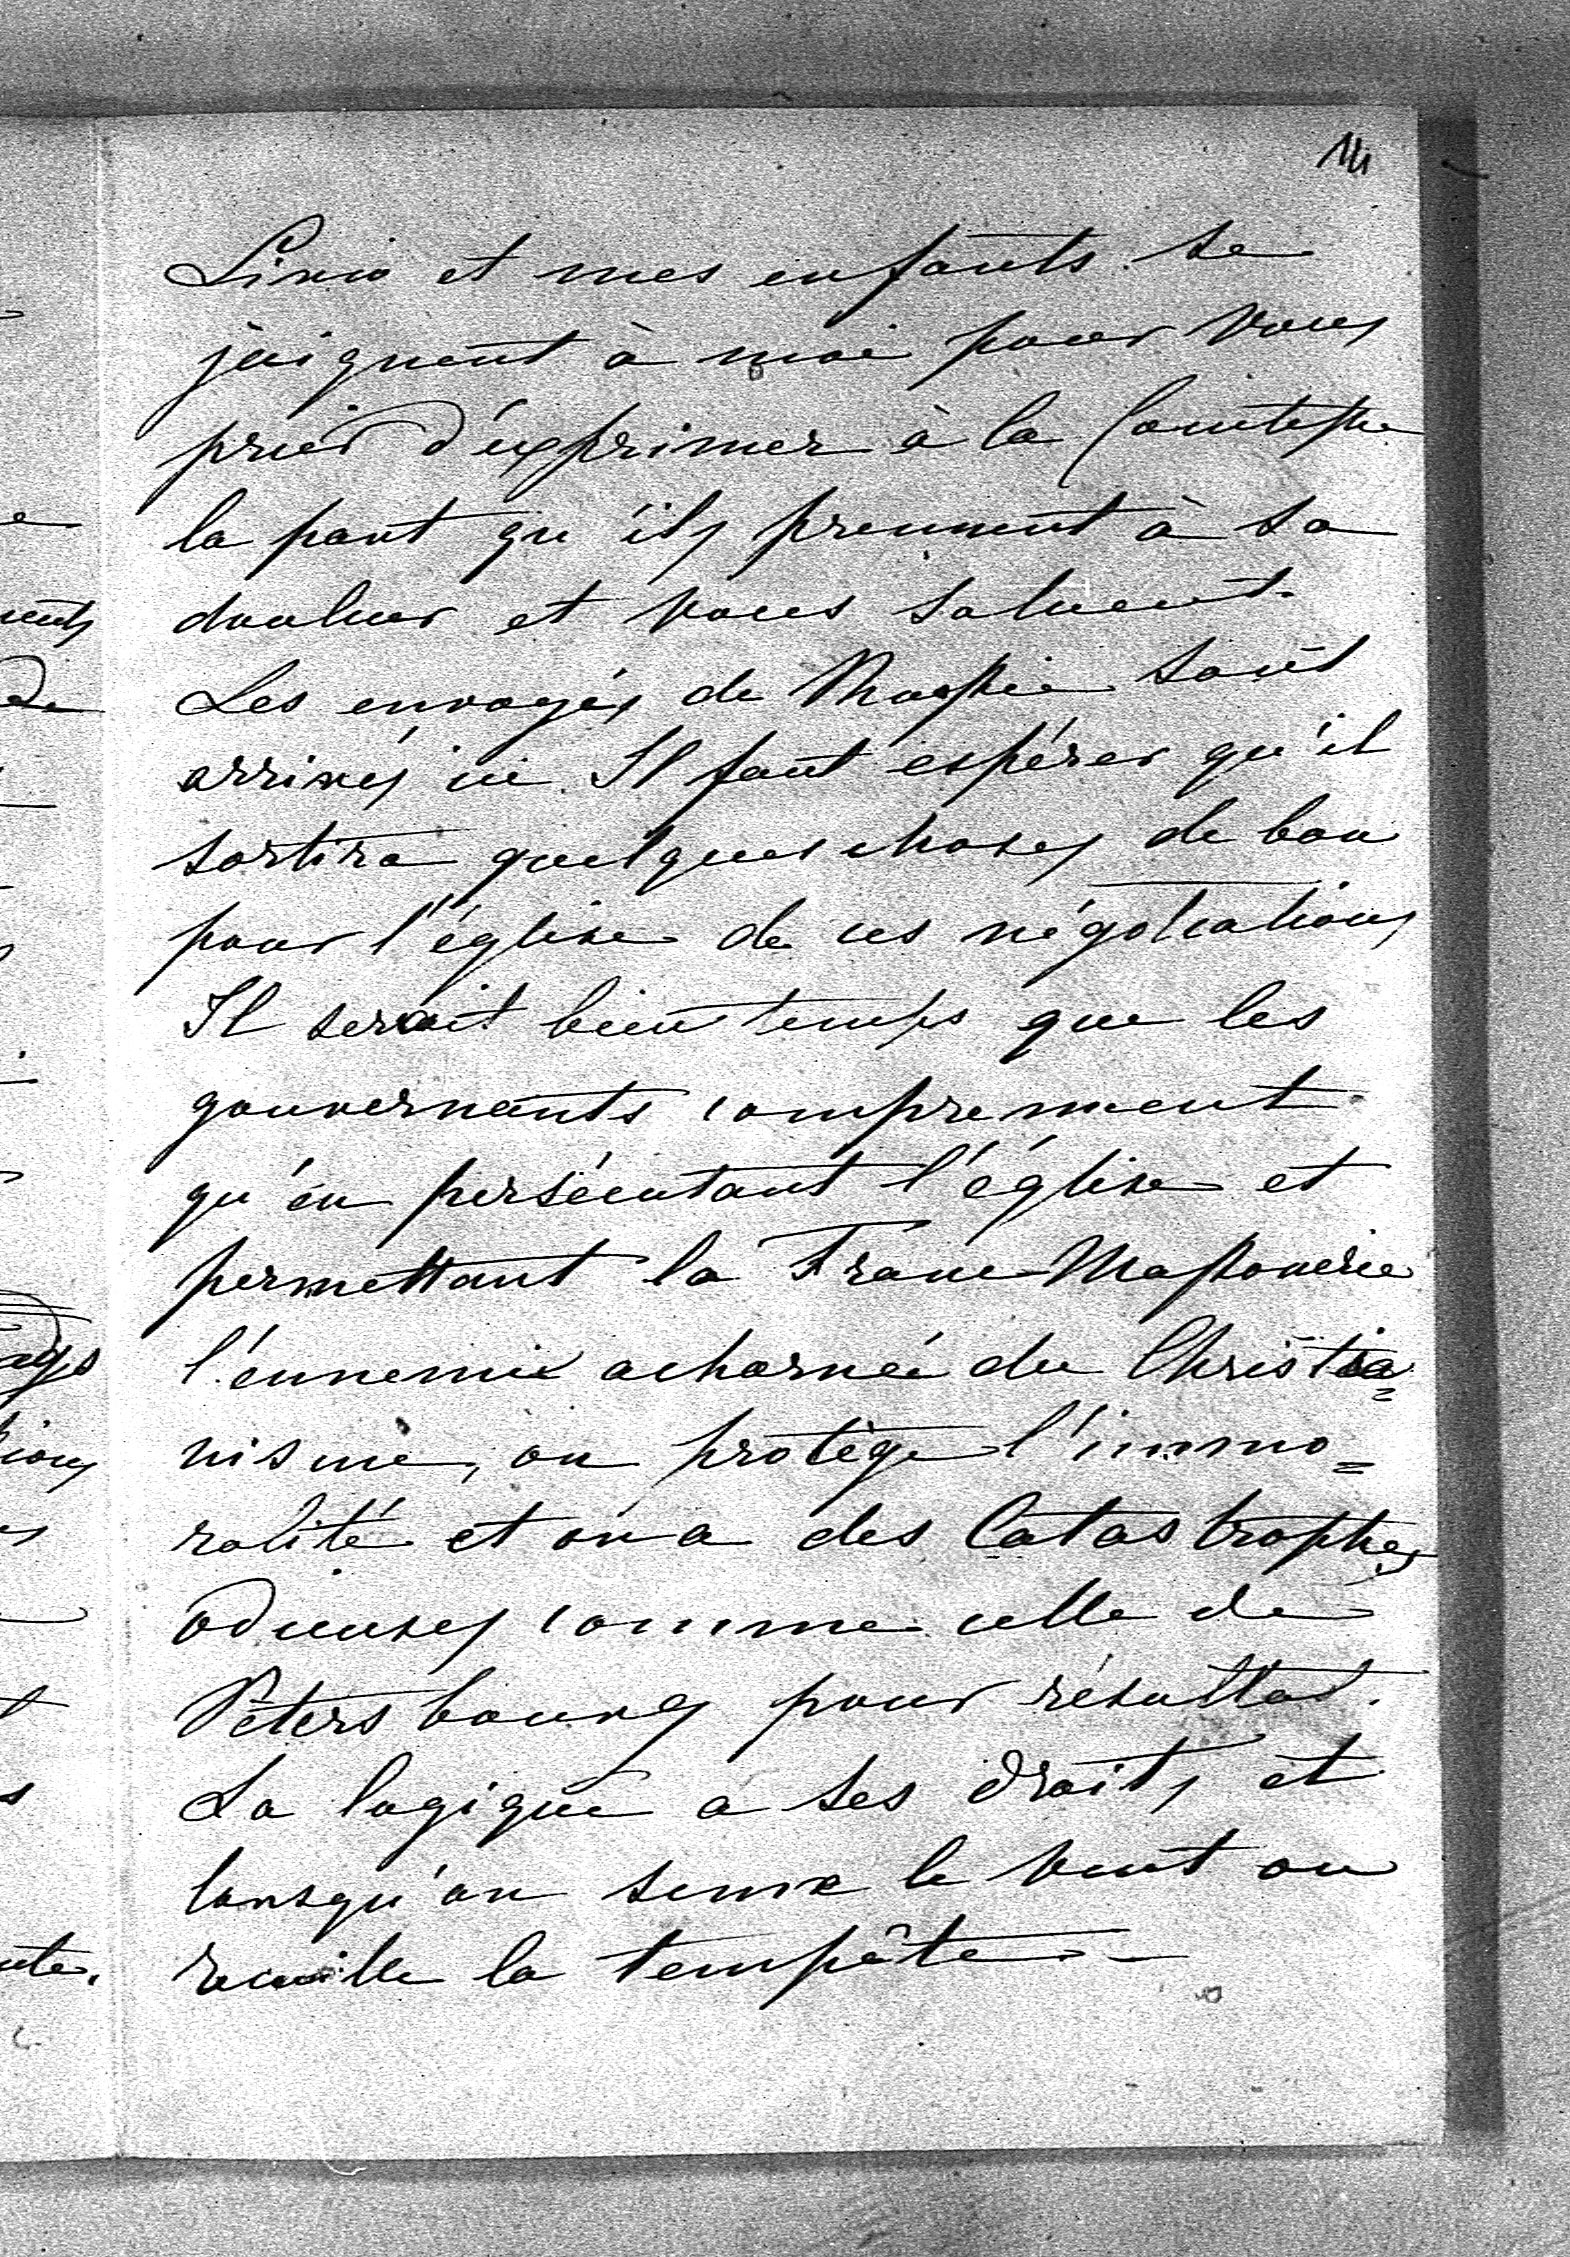 14
Livio et mes enfants se
joignent à moi pour vous
prier d'exprimer à la Comtesse
la part qu'ils prennent à sa
douleur et vous saluent.
Les envoyés de Russie sont
arrivés ici. Il faut espérer qu'il
sortira quelques choses de bon
pour l'église de ces négotiations
Il serait bien temps que les
gouvernants comprennent
qu'en persécutant l'église et
permettant la Franc-Massonerie
l'ennemie acharnée du Christia=
nisme, on protège l'immo=
ralité et on a des Catastrophes
odieuses comme celle de
Pétersbourg pour résultat.
La logique a ses droits et
lorsqu'on seme le vent on
recueille la tempête. –